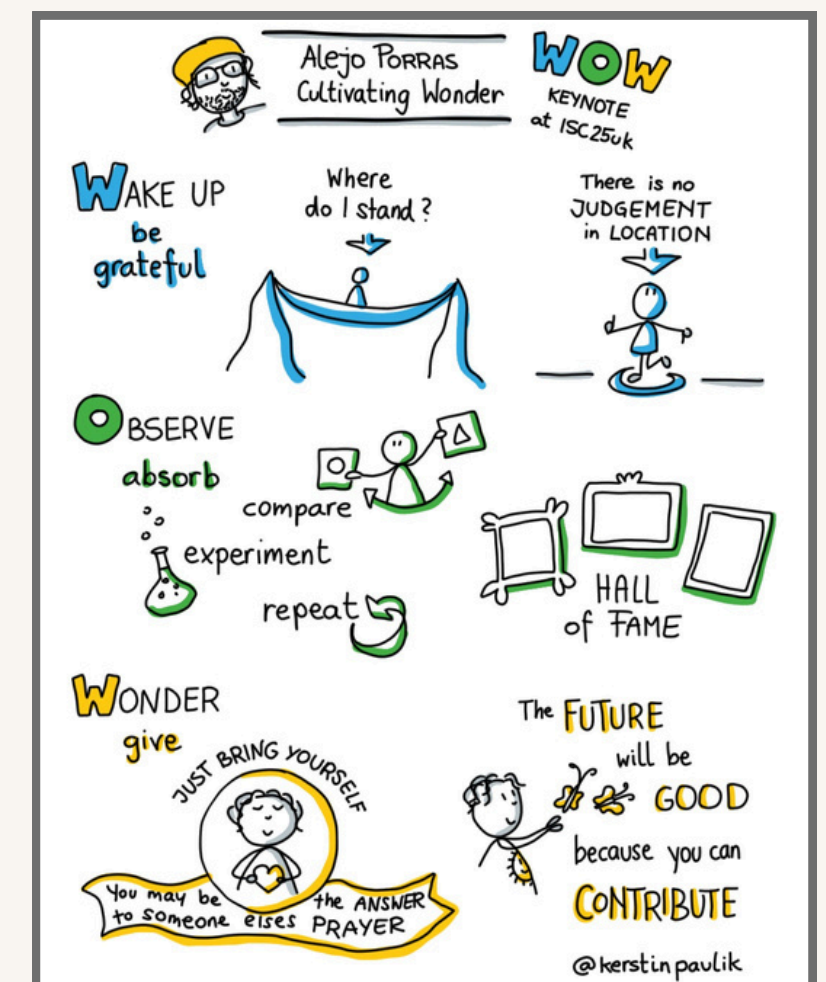 Alejo PORRAS
Cultivating Wonder
WOW
KEYNOTE
at ISC25uk
WAKE UP
be
grateful
Where
do I stand?
There is no
JUDGEMENT
in LOCATION
OBSERVE
absorb
compare
experiment
repeat
HALL
of FAME
WONDER
give
JUST BRING YOURSELF
You may be the ANSWER
to someone elses PRAYER
The FUTURE
will be
GOOD
because you can
CONTRIBUTE
@kerstinpaulik